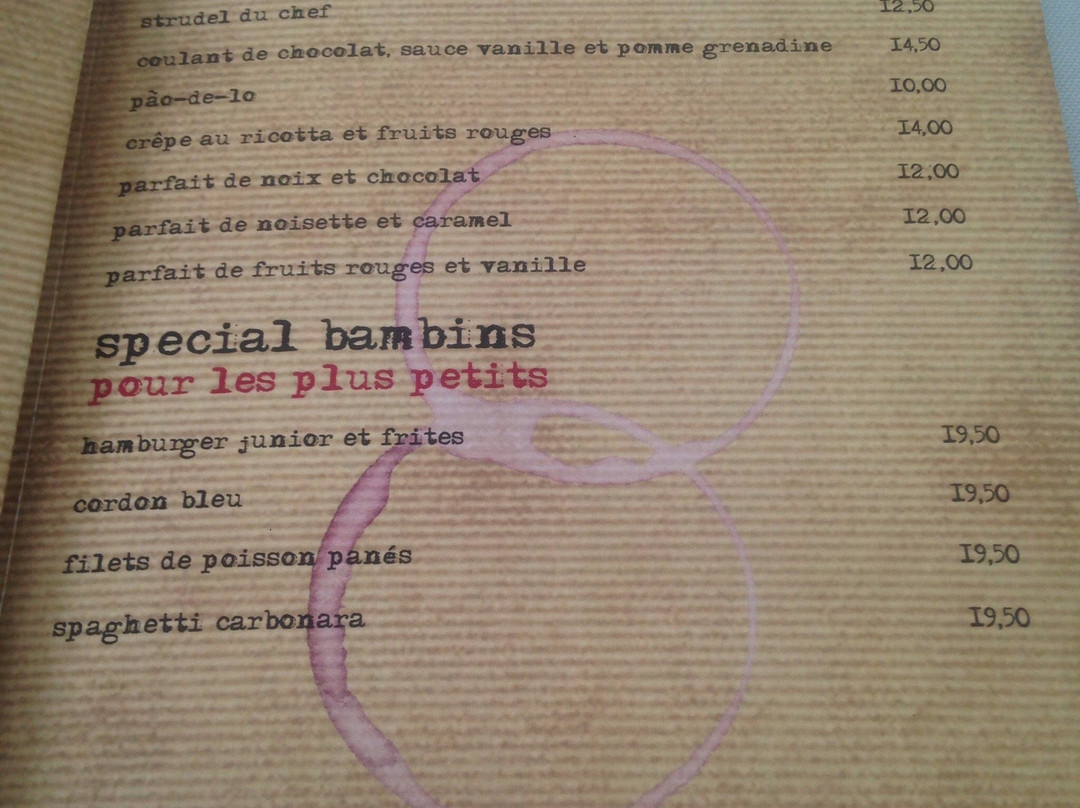 strudel du chef 12,50
coulant de chocolat, sauce vanille et pomme grenadine 14,50
pào-de-lo 10,00
crêpe au ricotta et fruits rouges 14,00
parfait de noix et chocolat 12,00
parfait de noisette et caramel 12,00
parfait de fruits rouges et vanille 12,00
special bambins
pour les plus petits
hamburger junior et frites 19,50
cordon bleu 19,50
filets de poisson panés 19,50
spaghetti carbonara 19,50